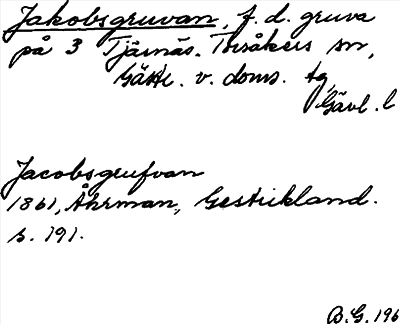 Jakobsgruvan, f. d. gruva
på 3 Tjärnäs. Torsåkers sn,
Gästr. v. doms. tg,
Gävl. l
Jacobsgrufvan
1861, Åhrman, Gestrikland.
s. 191.
B.G. 196